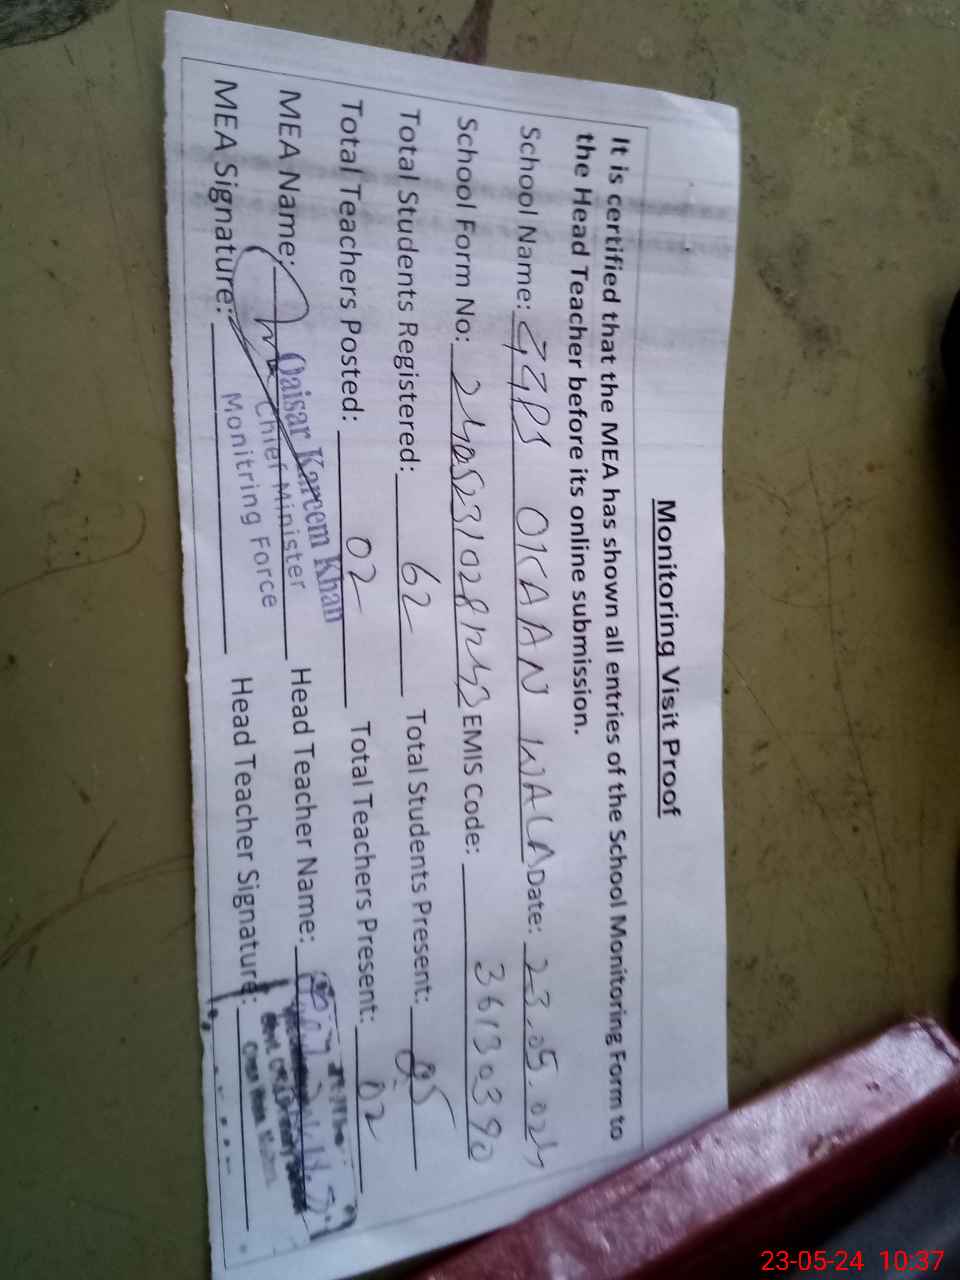 Monitoring Visit Proof
It is certified that the MEA has shown all entries of the School Monitoring Form to
the Head Teacher before its online submission.
School Name: GGPS OKAAN WALA Date: 23.05.024
School Form No: 24052310281243 EMIS Code: 36130390
Total Students Registered: 62 Total Students Present: 05
Total Teachers Posted: 02 Total Teachers Present: 02
MEA Name: Qaisar Kareem Khan Head Teacher Name:
Chief Minister
MEA Signature: Monitring Force Head Teacher Signature:
23-05-24 10:37